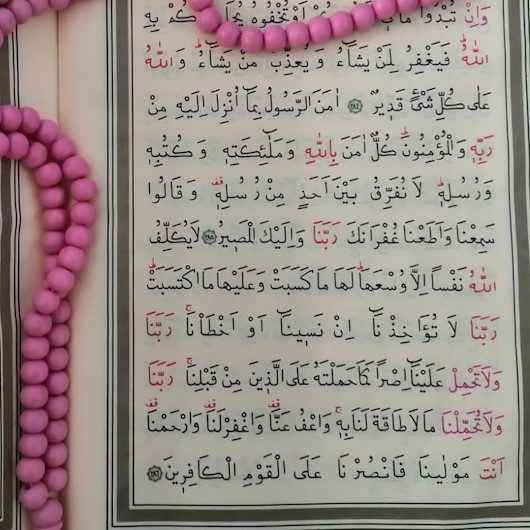 وَاِنْ تُبْدُوا مَا اَوْ تُخْفُوهُ بِهِ
اللّٰهُ فَيَغْفِرُ لِمَنْ يَشَٓاءُ وَيُعَذِّبُ مَنْ يَشَٓاءُ وَاللّٰهُ
عَلٰى كُلِّ شَيْءٍ قَدِيرٌ ﴿٢٨٤﴾ اٰمَنَ الرَّسُولُ بِمَٓا اُنْزِلَ اِلَيْهِ مِنْ
رَبِّهِ وَالْمُؤْمِنُونَ كُلٌّ اٰمَنَ بِاللّٰهِ وَمَلٰٓئِكَتِهِ وَكُتُبِهِ
وَرُسُلِهِ لَا نُفَرِّقُ بَيْنَ اَحَدٍ مِنْ رُسُلِهِ وَقَالُوا
سَمِعْنَا وَاَطَعْنَا غُفْرَانَكَ رَبَّنَا وَاِلَيْكَ الْمَصِيرُ ﴿٢٨٥﴾ لَا يُكَلِّفُ
اللّٰهُ نَفْساً اِلَّا وُسْعَهَا لَهَا مَا كَسَبَتْ وَعَلَيْهَا مَا اكْتَسَبَتْ
رَبَّنَا لَا تُؤَاخِذْنَٓا اِنْ نَسِينَٓا اَوْ اَخْطَأْنَا رَبَّنَا
وَلَا تَحْمِلْ عَلَيْنَٓا اِصْراً كَمَا حَمَلْتَهُ عَلَى الَّذِينَ مِنْ قَبْلِنَا رَبَّنَا
وَلَا تُحَمِّلْنَا مَا لَا طَاقَةَ لَنَا بِهِ وَاعْفُ عَنَّا وَاغْفِرْ لَنَا وَارْحَمْنَا
اَنْتَ مَوْلٰينَا فَانْصُرْنَا عَلَى الْقَوْمِ الْكَافِرِينَ ﴿٢٨٦﴾